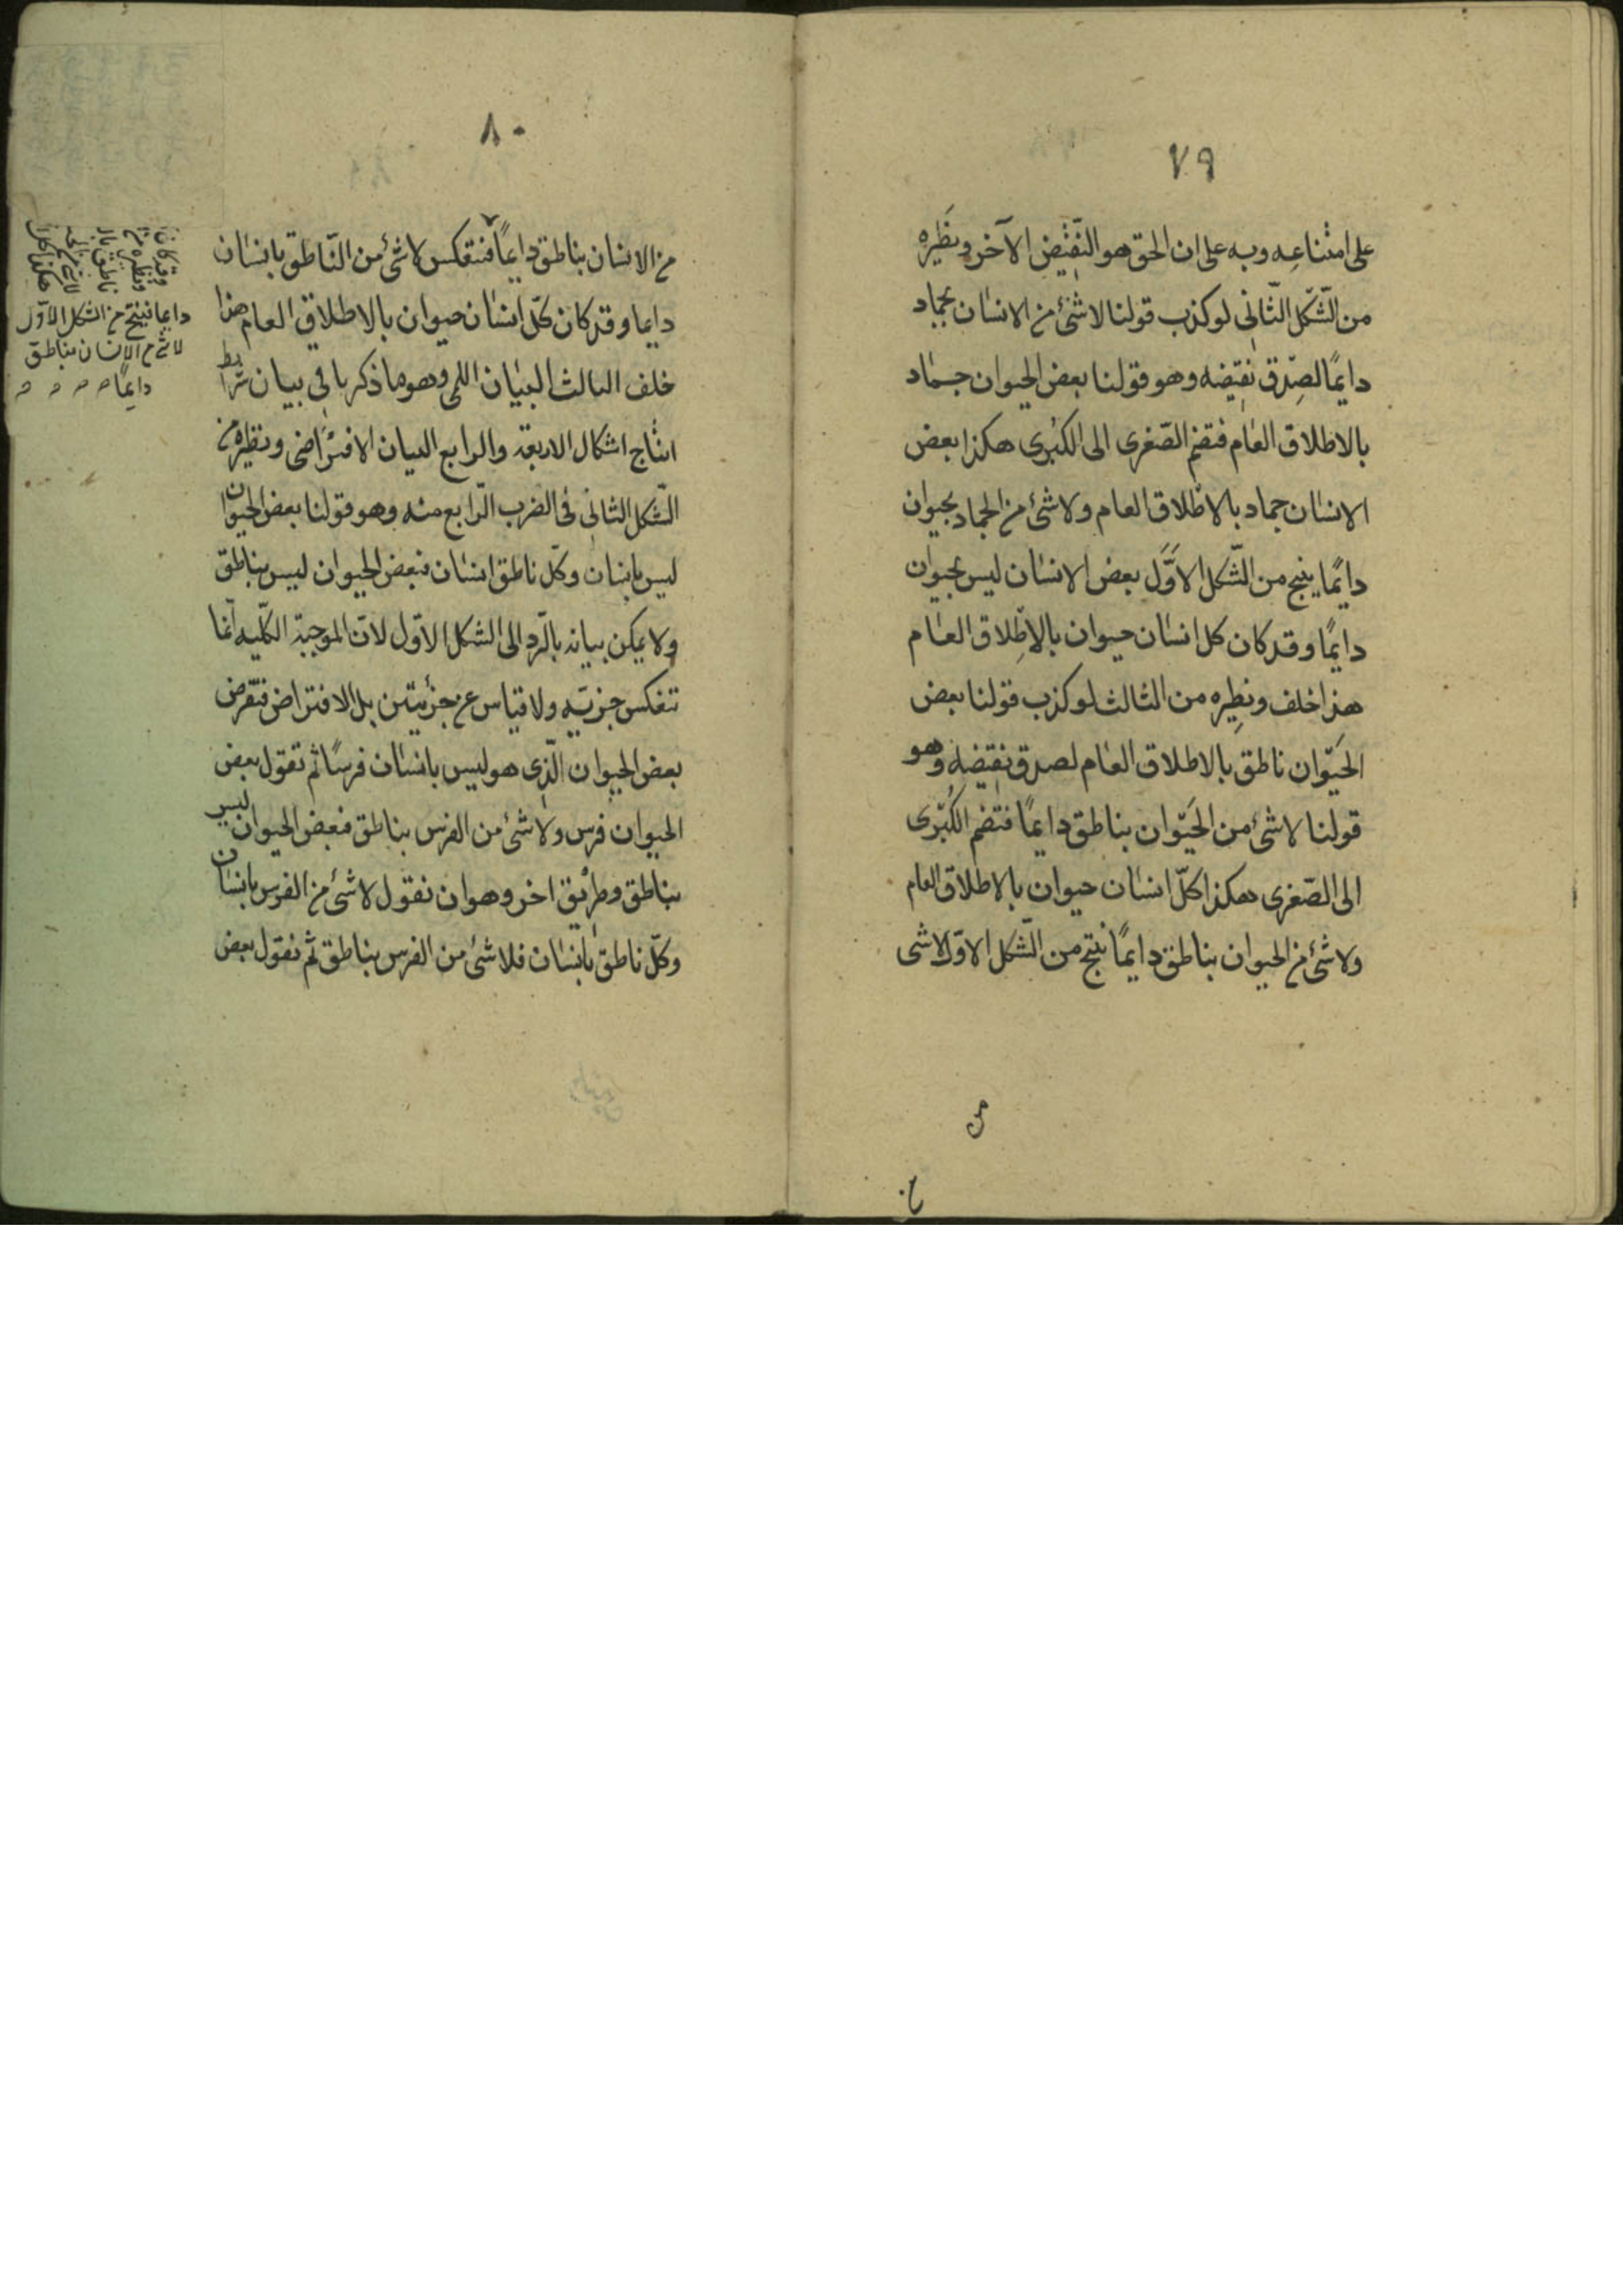 ٧٩
على امتناعه وبه على ان الحق هو النقيض الآخر ونظيره
من الشّكل الثّاني لو كذب قولنا لا شئ من الانسان بجماد
دايمًا لصدق نقيضه وهو قولنا بعض الحيوان جماد
بالاطلاق العام فتضم الصّغرى الى الكبرى هكذا بعض
الانسان جماد بالاطلاق العام ولا شئ من الجماد بحيوان
دايمًا ينتج من الشّكل الاوّل بعض الانسان ليس بحيوان
دايمًا وقد كان كل انسان حيوان بالاطلاق العام
هذا خلف ونظيره من الثالث لو كذب قولنا بعض
الحيوان ناطق بالاطلاق العام لصدق نقيضه وهو
قولنا لا شئ من الحيوان بناطق دايمًا فتضم الكبرى
الى الصّغرى هكذا كلّ انسان حيوان بالاطلاق العام
ولا شئ من الحيوان بناطق دايمًا ينتج من الشّكل الاوّل لا شئ
٨٠
من الانسان بناطق دايمًا فتنعكس لا شئ من النّاطق بانسان
دايما وقد كان كلّ انسان حيوان بالاطلاق العام هذا
خلف الثالث البيان اللمي وهو ما ذكر في بيان شرايط
انتاج اشكال الاربعة والرابع البيان الافتراضى ونظيره من
الشّكل الثاني في الضرب الرّابع منه وهو قولنا بعض الحيوان
ليس بانسان وكلّ ناطق انسان فبعض الحيوان ليس بناطق
ولا يمكن بيانه بالرّد الى الشكل الاوّل لانّ الموجبة الكلّيه انّما
تنعكس جزئيّه ولا قياس عن جزئيتين بل الافتراض فتفرض
بعض الحيوان الّذى هو ليس بانسان فرسًا ثم تقول بعض
الحيوان فرس ولا شئ من الفرس بناطق فبعض الحيوان ليس
بناطق وطريق اخر وهو ان نقول لا شئ من الفرس بانسان
وكلّ ناطق بانسان فلا شئ من الفرس بناطق ثم نقول بعض
دايما ينتج من الشكل الاوّل
لا شئ من الانسان بناطق
دايمًا